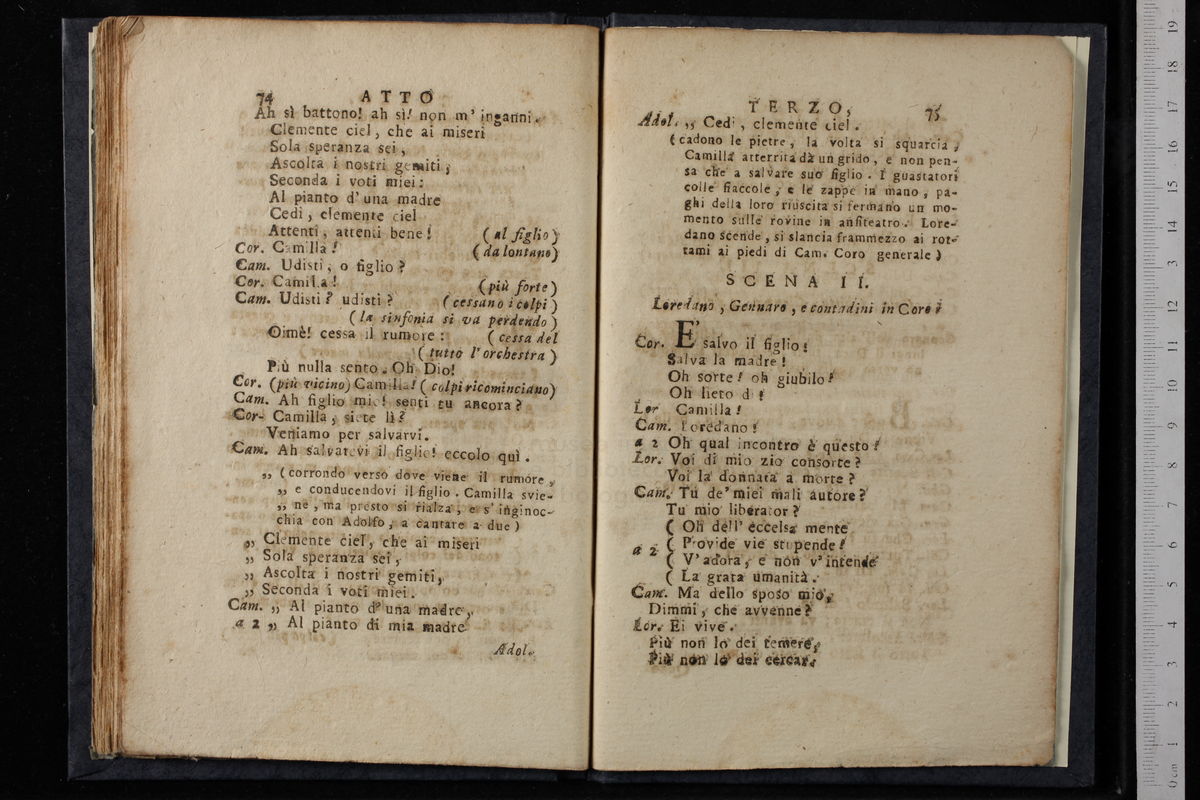 74 ATTO
Ah sì battono! ah sì! non m' inganni.
Clemente ciel, che ai miseri
Sola speranza sei,
Ascolta i nostri gemiti,
Seconda i voti miei:
Al pianto d' una madre
Cedi, clemente ciel
Attenti, attenti bene! (al figlio)
Cor. Camilla! (da lontano)
Cam. Udisti, o figlio?
Cor. Camilla! (più forte)
Cam. Udisti? udisti? (cessano i colpi)
(la sinfonia si va perdendo)
Oimè! cessa il rumore: (cessa del
(tutto l'orchestra)
Più nulla sento. Oh Dio!
Cor. (più vicino) Camilla! (colpi ricominciano)
Cam. Ah figlio mio! senti tu ancora?
Cor- Camilla, siete lì?
Veniamo per salvarvi.
Cam. Ah salvatevi il figlio! eccolo quì.
„ (corrondo verso dove viene il rumore,
„ e conducendovi il figlio. Camilla svie-
„ ne, ma presto si rialza, e s' inginoc-
chia con Adolfo, a cantare a due)
„ Clemente ciel, che ai miseri
„ Sola speranza sei,
„ Ascolta i nostri gemiti,
„ Seconda i voti miei.
Cam. „ Al pianto d' una madre,
a 2 „ Al pianto di mia madre
Adol.
TERZO, 75
Adol. „ Cedi, clemente ciel.
(cadono le pietre, la volta si squarcia,
Camilla atterrita dà un grido, e non pen-
sa che a salvare suo figlio. I guastatori
colle fiaccole, e le zappe in mano, pa-
ghi della loro riuscita si fermano un mo-
mento sulle rovine in anfiteatro. Lore-
dano scende, si slancia frammezzo ai rot-
tami ai piedi di Cam. Coro generale)
SCENA II.
Loredano, Gennaro, e contadini in Coro.
Cor. E' salvo il figlio!
Salva la madre!
Oh sorte! oh giubilo!
Oh lieto dì!
Lor Camilla!
Cam. Loredano!
a 2 Oh qual incontro è questo!
Lor. Voi di mio zio consorte?
Voi la donnata a morte?
Cam. Tu de' miei mali autore?
Tu mio liberator?
( Oh dell' eccelsa mente
a 2 ( Provide vie stupende!
( V' adora, e non v' intende
( La grata umanità.
Cam. Ma dello sposo mio,
Dimmi, che avvenne?
Lor. Ei vive.
Più non lo dei temere,
Più non lo dei cercar.
0 cm 1 2 3 4 5 6 7 8 9 10 11 12 13 14 15 16 17 18 19